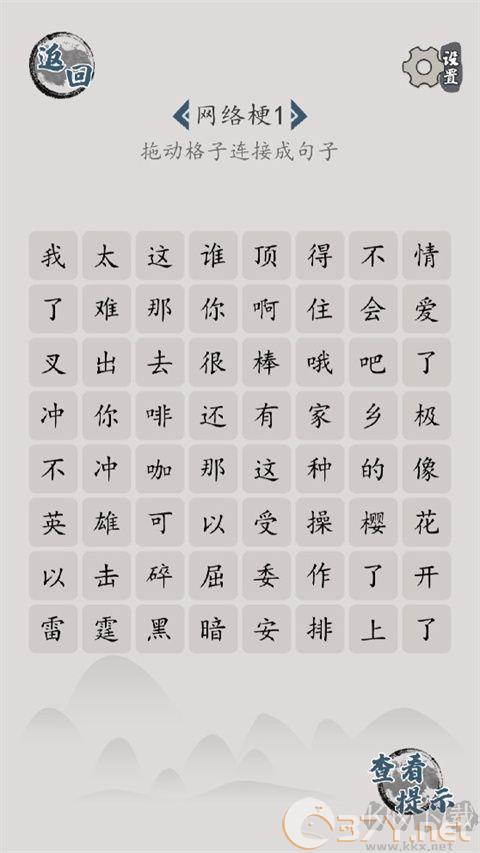 返回
设置
网络梗1
拖动格子连接成句子
我太这谁顶得不情
了难那你啊住会爱
叉出去很棒哦吧了
冲你啡还有家乡极
不冲咖那这种的像
英雄可以受操樱花
以击碎屈委作了开
雷霆黑暗安排上了
查看
提示
www.kkx.net